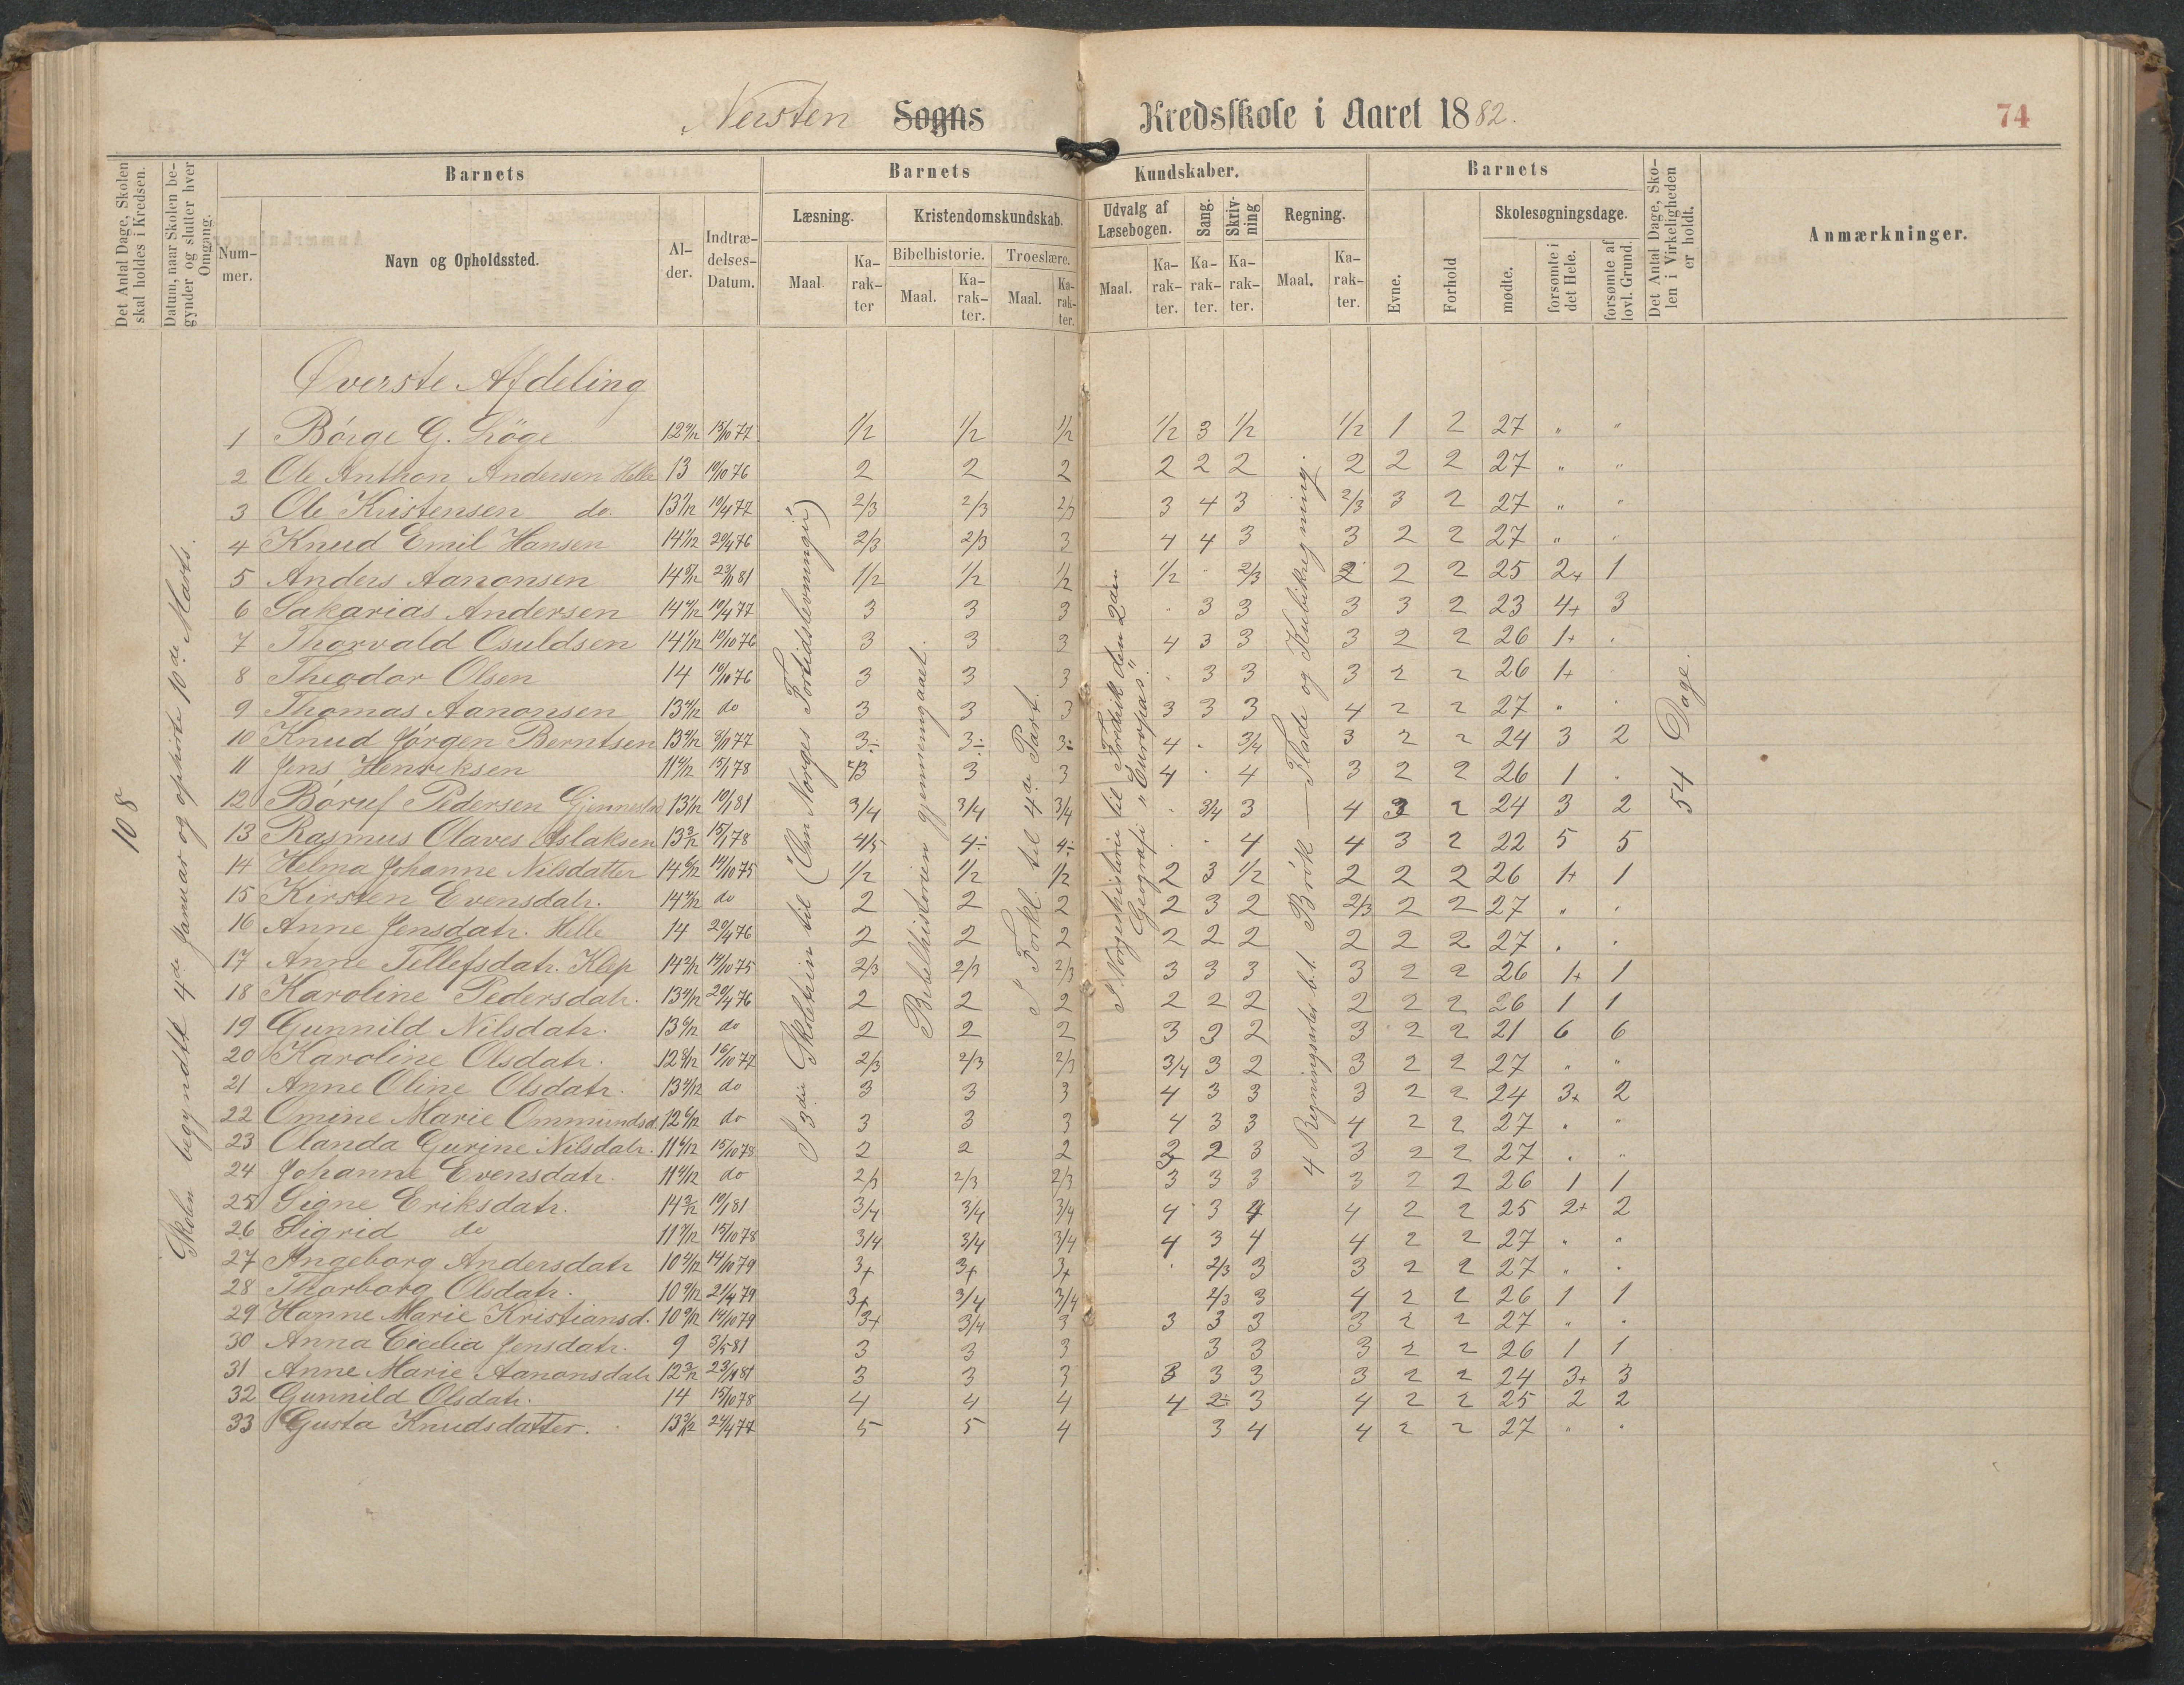 Nersten Sogns Kredsskole i Aaret 1882. 74
Det Antal Dage, Skolen skal holdes i Kredsen.
Datum, naar Skolen begynder og slutter hver Omgang.
Barnets Barnets Kundskaber. Barnets
Det Antal Dage, Skolen i Virkeligheden er holdt.
Anmærkninger.
Nummer. Navn og Opholdssted. Alder. Indtrædelses-Datum.
Læsning. Kristendomskundskab. Udvalg af Læsebogen. Sang. Skrivning Regning. Evne. Forhold Skolesøgningsdage.
Bibelhistorie. Troeslære.
Maal. Karakter Maal. Karakter. Maal. Karakter. Maal. Karakter. Karakter. Karakter. Maal. Karakter. mødte. forsømte i det Hele. forsømte af lovl. Grund.
108
Skolen begyndte 4de Januar og ophørte 10de Marts.
I 3die Skoletrin til (Om Norges Fortidslevninger)
Bibelhistorien gjennemgaaet.
I Forkl. til 4de Part.
I Norgeshistorie til Fredrik den 2den
Geografi "Europas."
4 Regningsarter b.t. Brök — Flade og Kubikregning.
54 Dage.
Øverste Afdeling
1 Börge G. 1/2 1/2 1/2 1/2 3 1/2 1/2 1 2 27 " "
2 Ole Anthon Andersen Helle 13 10/10 76 2 2 2 2 2 2 2 2 2 27 " "
3 Ole Kristensen do. 10/4 77 2/3 2/3 2/3 3 4 3 2/3 3 2 27 " "
4 Knud Emil Hansen 20/4 76 2/3 2/3 3 4 4 3 3 2 2 27 " "
5 Anders Aanonsen 23/11 81 1/2 1/2 1/2 1/2 . 2/3 2 2 2 25 2+ 1
6 Sakarias Andersen 10/4 77 3 3 3 . 3 3 3 3 2 23 4+ 3
7 Thorvald Osuldsen 10/10 76 3 3 3 4 3 3 3 2 2 26 1+ .
8 Theodor Olsen 14 10/10 76 3 3 3 . 3 3 3 2 2 26 1+ .
9 Thomas Aanonsen do 3 3 3 3 3 3 4 2 2 27 " .
10 Knud Jörgen Berntsen 8/11 77 3÷ 3÷ 3÷ 4 . 3/4 3 2 2 24 3 2
11 Jens Henriksen 15/1 78 2/3 3 3 4 . 4 3 2 2 26 1 .
12 Böruf Pedersen 10/1 81 3/4 3/4 3/4 . 3/4 3 4 3 2 24 3 2
13 Rasmus Olaves Aslaksen 13 3/12 15/1 78 4/5 4÷ 4÷ . . 4 4 3 2 22 5 5
14 Helma Johanne Nilsdatter 14/10 75 1/2 1/2 1/2 2 3 1/2 2 2 2 26 1+ 1
15 Kirsten Evensdatr. do 2 2 2 2 3 2 2/3 2 2 27 " .
16 Anne Jensdatr. Helle 14 20/4 76 2 2 2 2 2 2 2 2 2 27 . .
17 Anne Tellefsdatr. Klep 14/10 75 2/3 2/3 2/3 3 3 3 3 2 2 26 1+ 1
18 Karoline Pedersdatr. 20/4 76 2 2 2 2 2 2 2 2 2 26 1 1
19 Gunnild Nilsdatr. do 2 2 2 3 3 2 3 2 2 21 6 6
20 Karoline Olsdatr. 16/10 77 2/3 2/3 2/3 3/4 3 2 3 2 2 27 " "
21 Anne Oline Olsdatr. do 3 3 3 4 3 3 3 2 2 24 3+ 2
22 Omine Marie Ommundsd. do 3 3 3 4 3 3 4 2 2 27 . "
23 Olanda Gurine Nilsdatr. 15/10 78 2 2 2 2 2 3 3 2 2 27 . "
24 Johanne Evensdatr. do 2/3 2/3 2/3 3 3 3 3 2 2 26 1 1
25 Signe Eriksdatr. 14 3/12 10/1 81 3/4 3/4 3/4 4 3 4 4 2 2 25 2+ 2
26 Sigrid do 15/10 78 3/4 3/4 3/4 4 3 4 4 2 2 27 " "
27 Ingeborg Andersdatr 14/10 79 3+ 3+ 3+ . 2/3 3 3 2 2 27 " .
28 Thorborg Olsdatr. 21/4 79 3+ 3/4 3/4 2/3 3 4 2 2 26 1 1
29 Hanne Marie Kristiansd. 14/10 79 3+ 3/4 3 3 3 3 3 2 2 27 " .
30 Anna Cicelia Jensdatr. 9 3/5 81 3 3 3 3 3 3 2 2 26 1 1
31 Anne Marie Aanonsdatr 12 3/12 23/11 81 3 3 3 3 3 3 3 2 2 24 3+ 3
32 Gunnild Olsdatr. 14 15/10 78 4 4 4 4 2÷ 3 4 2 2 25 2 2
33 Gusta Knudsdatter. 24/4 77 5 5 4 3 4 4 2 2 27 " .